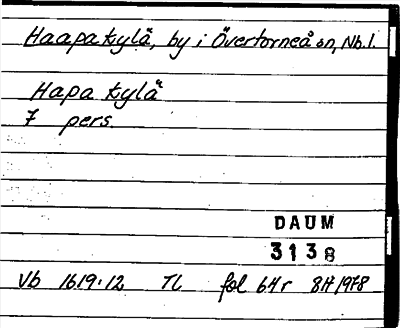 Haapakylä, by i Övertorneå sn, Nb.l.
Hapa kylä
7 pers.
DAUM
3138
Vb 1619:12 TL fol 64r 8H 1978